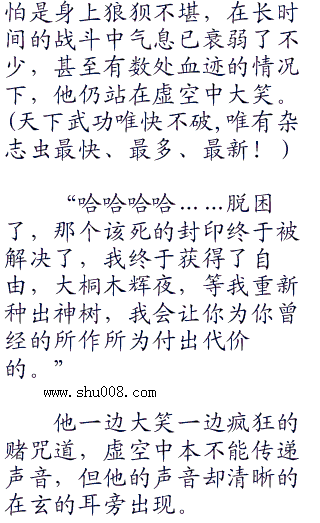 怕是身上狼狈不堪，在长时
间的战斗中气息已衰弱了不
少，甚至有数处血迹的情况
下，他仍站在虚空中大笑。
(天下武功唯快不破,唯有杂
志虫最快、最多、最新！ )
“哈哈哈哈……脱困
了，那个该死的封印终于被
解决了，我终于获得了自
由，大桐木辉夜，等我重新
种出神树，我会让你为你曾
经的所作所为付出代价
的。”
www.shu008.com
他一边大笑一边疯狂的
赌咒道，虚空中本不能传递
声音，但他的声音却清晰的
在玄的耳旁出现。